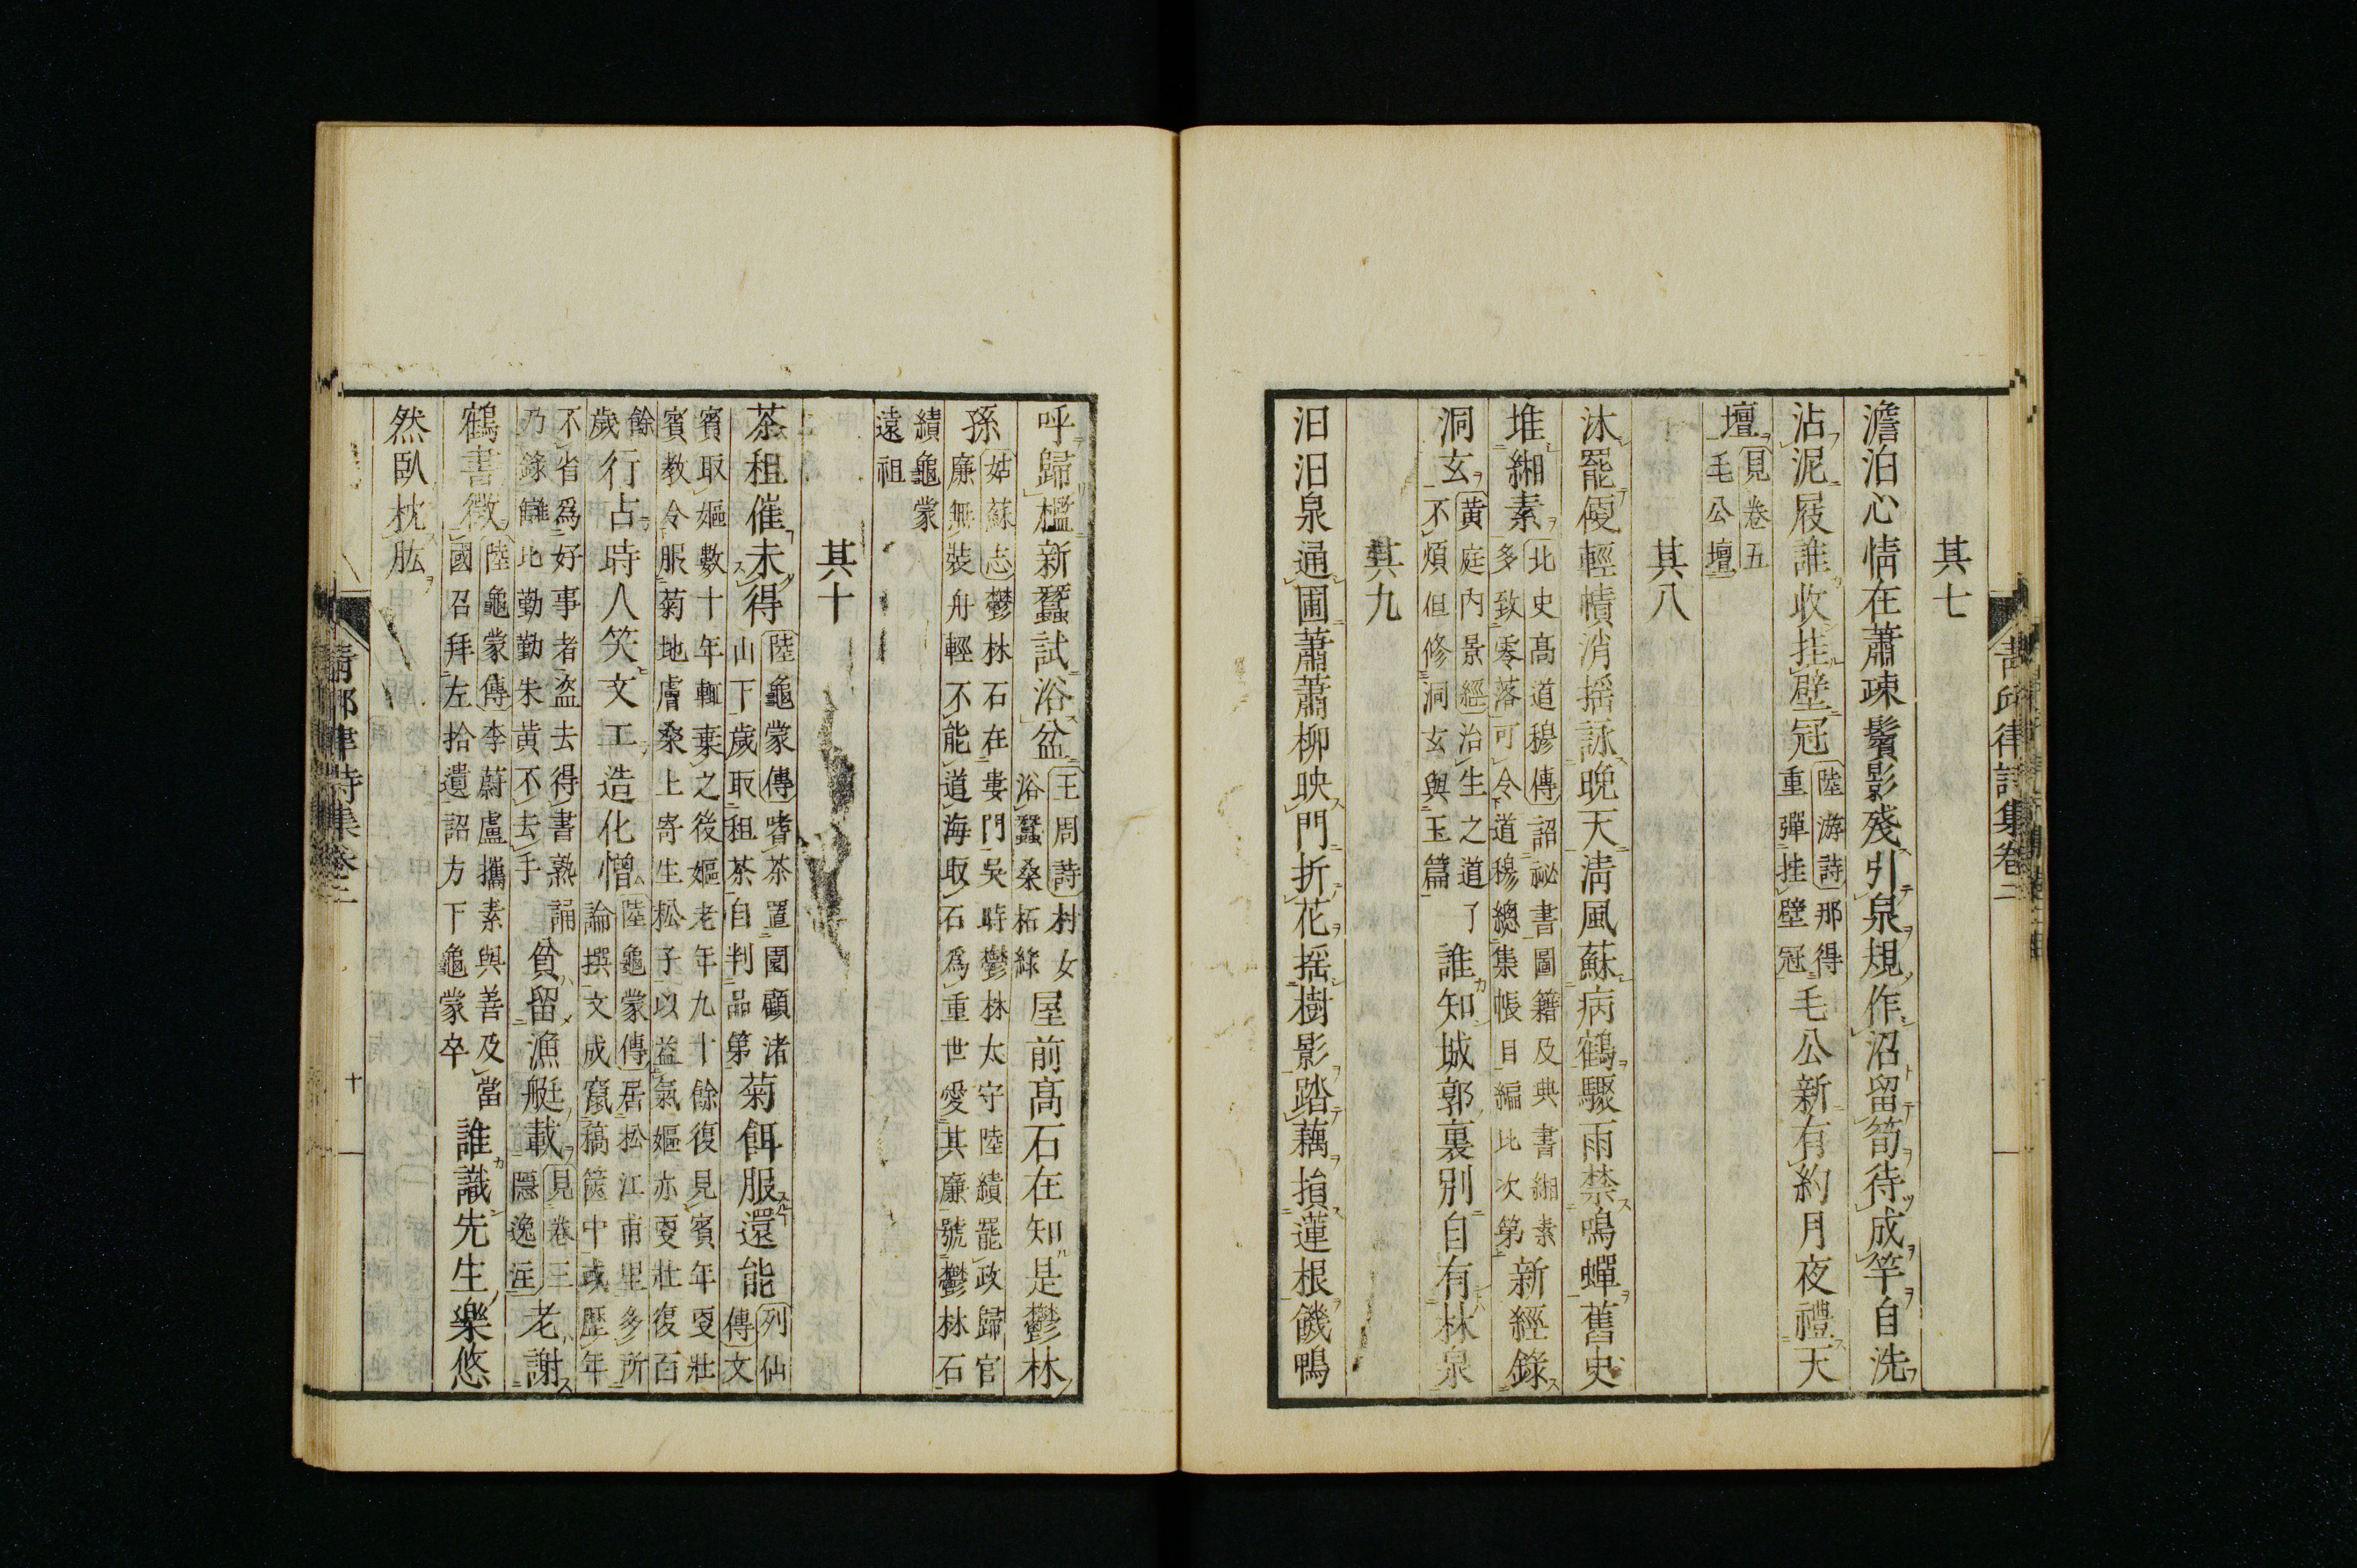 其七
澹泊心情在蕭疎鬢影殘引泉規作沼留筍待成竿自洗
沾泥履誰收挂壁冠
陸游詩那得
重彈挂壁冠
毛公新有約月夜禮天
壇
見卷五
毛公壇
其八
沐罷傾輕幘消搖詠晚天淸風蘇病鶴驟雨禁鳴蟬舊史
堆緗素
北史高道穆傳詔祕書圖籍及典書緗素
多致零落可令道穆總集帳目編比次第
新經錄
洞玄
黃庭內景經治生之道了
不煩但修洞玄與玉篇
誰知城郭裏別自有林泉
其九
汩汩泉通圃蕭蕭柳映門折花搖樹影踏藕損蓮根饑鴨
靑邱律詩集卷二
呼歸檻新蠶試浴盆
王周詩村女
浴蠶桑柘綠
屋前高石在知是鬱林
孫
姑蘇志鬱林石在婁門吳時鬱林太守陸績罷政歸官
廉無裝舟輕不能道海取石爲重世愛其廉號鬱林石
績龜蒙
遠祖
其十
茶租催未得
陸龜蒙傳嗜茶置園顧渚
山下歲取租茶自判品第
菊餌服還能
列仙
傳文
賓取嫗數十年輒棄之後嫗老年九十餘復見賓年更壯
賓教令服菊地膚桑上寄生松子以益氣嫗亦更壯復百
餘
歲
行占時人笑文工造化憎
陸龜蒙傳居松江甫里多所
論撰文成竄稿篋中或歷年
不省爲好事者盜去得書熟誦
乃錄讎比勤勤朱黃不去手
貧留漁艇載
見卷三
隱逸注
老謝
鶴書徵
陸龜蒙傳李蔚盧攜素與善及當
國召拜左拾遺詔方下龜蒙卒
誰識先生樂悠
然臥枕肱
靑邱律詩集卷二
十